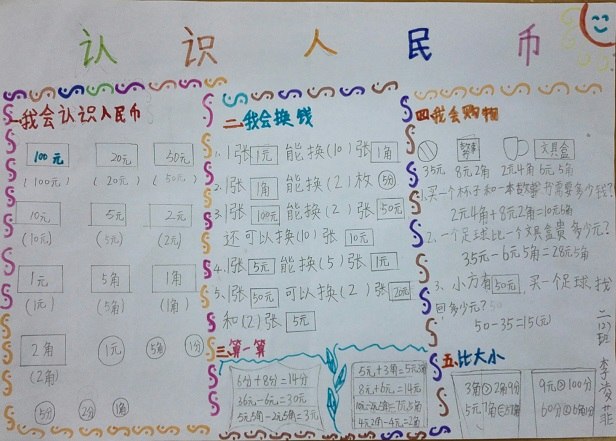 认识人民币
一我会认识人民币
100元 20元 50元
(100元) (20元) (50元)
10元 5元 2元
(10元) (5元) (2元)
1元 5角 1角
(1元) (5角) (1角)
2角 1元 5角 1分
(2角)
5分 2分 1角
二.我会换钱
1.1张1元能换(10)张1角
2.1张1角能换(2)枚5分
3.1张100元能换(2)张50元
还可以换(10)张10元
4.1张5元能换(5)张1元
5.1张50元可以换(2)张20元
和(2)张5元
三.算一算
6分+8分=14分
36元-6元=30元
5元5角-2元5角=3元
5元+3角=5元3角
8元+6元=14元
四我会购物
文具盒
35元 8元2角 2元4角 6元5角
1.买一个杯子和一本故事书需要多少钱?
2元4角+8元2角=10元6角
2.一个足球比一个文具盒贵多少元?
35元-6元5角=28元5角
3.小方有50元,买一个足球找
回多少元?
50-35=15(元)
五.比大小
3角>2角9分
9元>100分
60分=6角
二(1)班
李